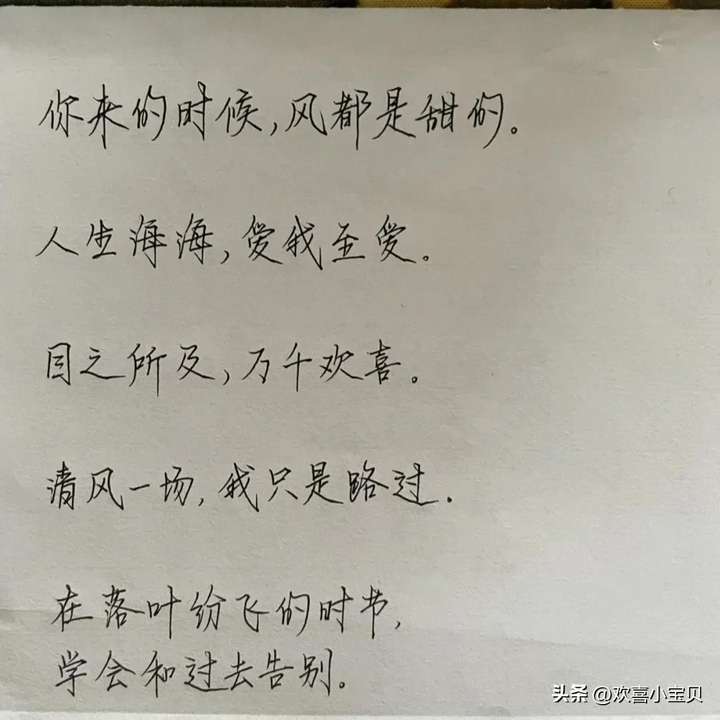 你来的时候,风都是甜的。
人生海海,爱我至爱。
目之所及,万千欢喜。
清风一场,我只是路过.
在落叶纷飞的时节,
学会和过去告别。
头条 @欢喜小宝贝